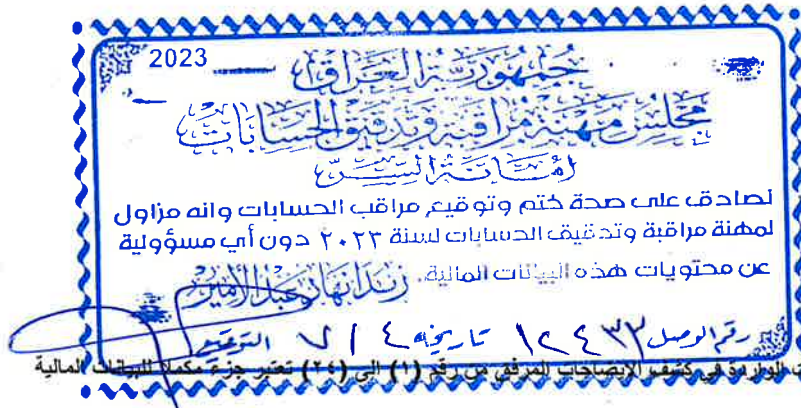 2023
جمهورية العراق
مجلس مهنة مراقبة وتدقيق الحسابات
أمانة السر
نصادق على صحة ختم وتوقيع مراقب الحسابات وانه مزاول
لمهنة مراقبة وتدقيق الحسابات لسنة ٢٠٢٣ دون أي مسؤولية
عن محتويات هذه البيانات المالية.
زيد انهاد عبد الأمير
رقم الوصل ١٢٤٣٣ تاريخه ٧/٤ التوقيع
الواردة في كشف الايضاحات المرفق من رقم (١) الى (٢٤) تعتبر جزء مكملا للبيانات المالية